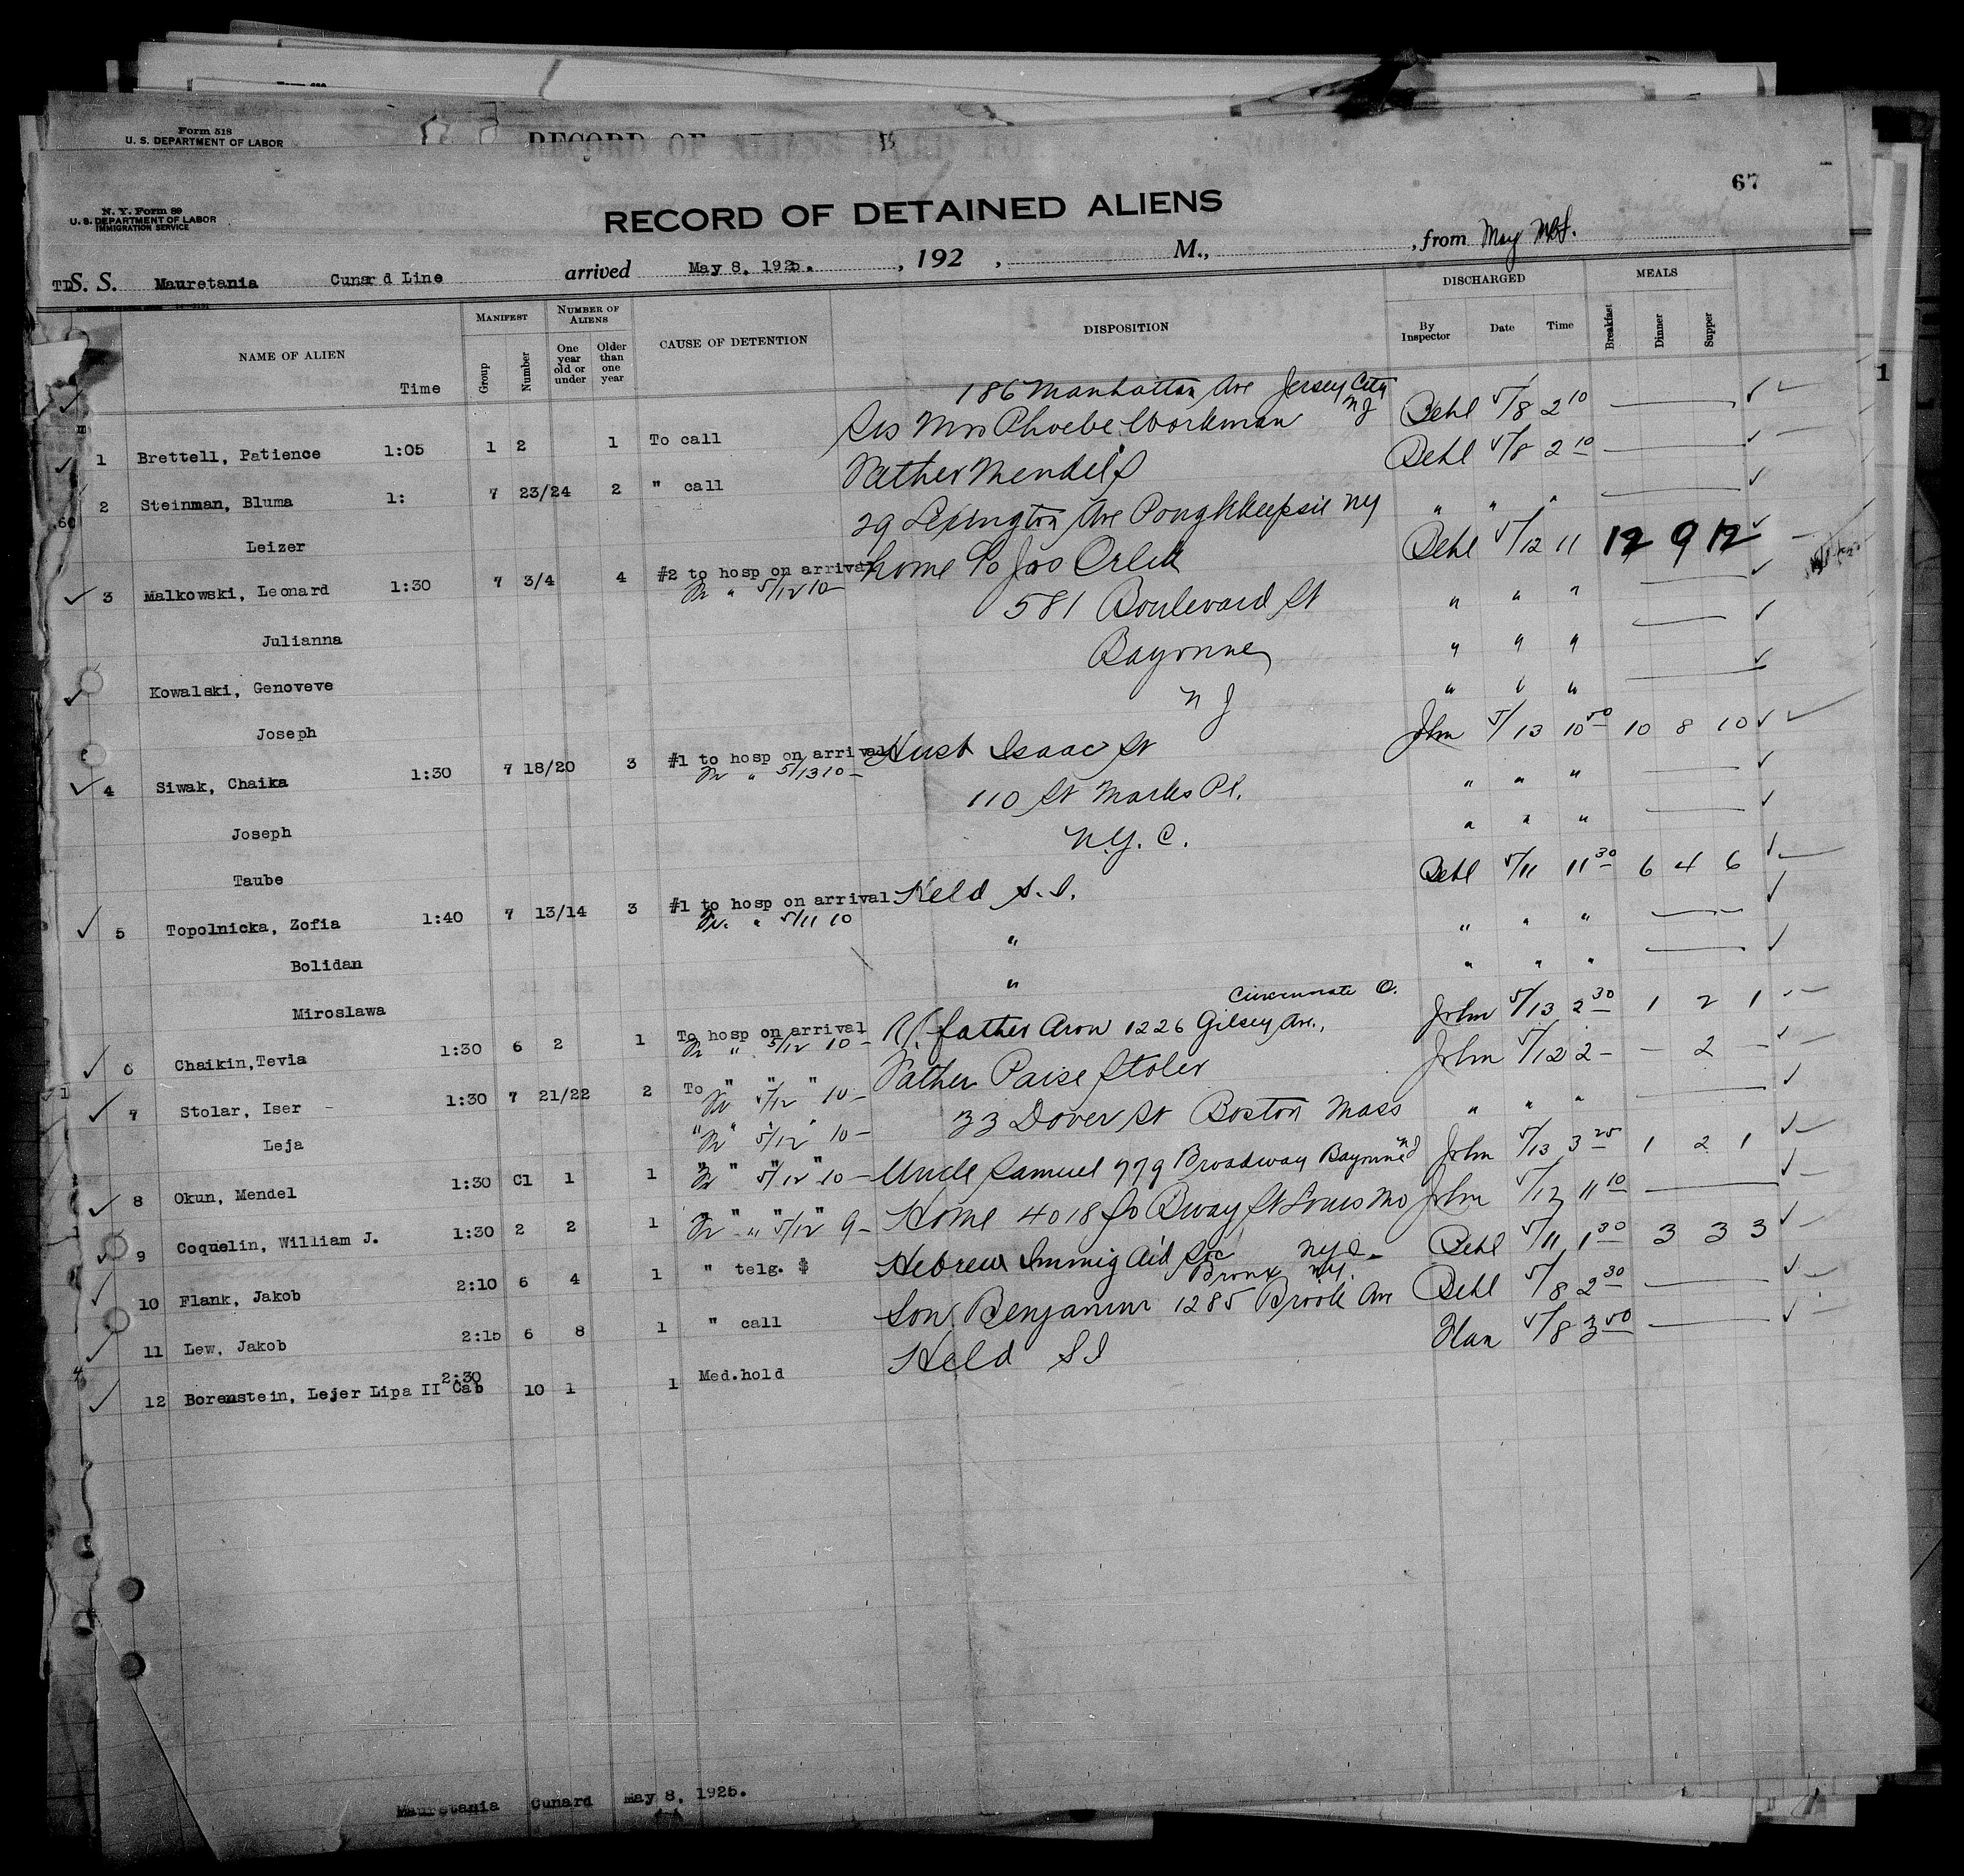 Form 518
U. S. DEPARTMENT OF LABOR
RECORD OF
67
N. Y. Form 89
U. S. DEPARTMENT OF LABOR
IMMIGRATION SERVICE
RECORD OF DETAINED ALIENS
S. S. Mauretania Cunard Line arrived May 8, 1925. , 192 , M., , from May
NAME OF ALIEN Time MANIFEST Group Number NUMBER OF ALIENS One year old or under Older than one year CAUSE OF DETENTION DISPOSITION DISCHARGED By Inspector Date Time MEALS Breakfast Dinner Supper
1
186 Manhattan Ave Jersey City NJ
1 Brettell, Patience 1:05 1 2 1 To call Sis Mrs Phoebe Workman 5/8 2 10
2 Steinman, Bluma 1: 7 23/24 2 " call Father Mendel S 5/8 2 10
Leizer 29 Lexington Ave Poughkeepsie NY " " "
3 Malkowski, Leonard 1:30 7 3/4 4 #2 to hosp on arrival home c/o Jos Orlik 5/12 11 12 9 12
" 5/12 10 -
Julianna 581 Boulevard St " " "
Kowalski, Genoveve Bayonne " " "
Joseph N J " " "
4 Siwak, Chaika 1:30 7 18/20 3 #1 to hosp on arrival Husb Isaac St 5/13 10 50 10 8 10
" 5/13 10 -
Joseph 110 St Marks Pl. " " "
Taube N.Y. C. " " "
5 Topolnicka, Zofia 1:40 7 13/14 3 #1 to hosp on arrival Held S.I. 5/11 11 30 6 4 6
" 5/11 10
Bolidan " " " "
Miroslawa " " " "
Cincinnati O.
6 Chaikin,Tevia 1:30 6 2 1 To hosp on arrival father Aron 1226 Gilsey Ave., 5/13 2 30 1 2 1
" 5/12 10 -
7 Stolar, Iser - 1:30 7 21/22 2 To " " " Father Paise Stoler 5/12 2 - - 2 -
5/12 10 -
Leja " " 5/12 10 - 33 Dover St Boston Mass " " "
8 Okun, Mendel 1:30 C1 1 1 " " " " 5/12 10 - Uncle Samuel 779 Broadway Bayonne NJ 5/13 3 25 1 2 1
9 Coquelin, William J. 1:30 2 2 1 " " " " 5/12 9 - Home 4018 So Bway St Louis Mo 5/12 11 10
10 Flank, Jakob 2:10 6 4 1 " telg. $ Hebrew Immig Aid Soc NYC 5/11 1 30 3 3 3
Bronx NY.
11 Lew, Jakob 2:15 6 8 1 " call Son Benjamin 1285 Brook Ave 5/8 2 30
2:30
12 Borenstein, Lejer Lipa II Cab 10 1 1 Med.hold Held S I 5/8 3 50
Mauretania Cunard May 8, 1925.